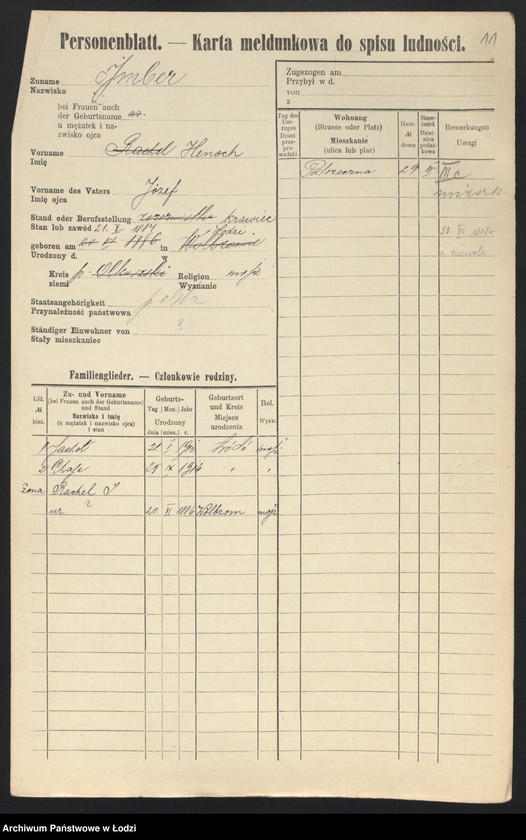 Personenblatt. — Karta meldunkowa do spisu ludności.
11
Zuname
Nazwisko
Imber
bei Frauen auch
der Geburtsname
u mężatek i na-
zwisko ojca
Vorname
Imię
Rachel Henoch
Vorname des Vaters
Imię ojca
Józef
Stand oder Berufsstellung
Stan lub zawód
krawiec
21. X 1887
Łódzi.
geboren am 20 VI 1886 in Wolbromu
Urodzony d. w
Kreis
ziemi
p. Olkuszki
Religion
Wyznanie
mojż
Staatsangehörigkeit
Przynależność państwowa
polska
Ständiger Einwohner von
Stały mieszkaniec
?
Zugezogen am
Przybył w d.
von
z
Tag des
Um-
zuges
Dzień
przepro-
wadzki
Wohnung
(Strasse oder Platz)
Mieszkanie
(ulica lub plac)
Haus-
№
domu
Steuer-
bezirk
Dziel-
nica
podat-
kowa
Bemerkungen
Uwagi
Polrzeczna 29 IV III c
30 VI
z niewoli
Familienglieder. — Członkowie rodziny.
Lfd.
№
bież.
Zu- und Vorname
(bei Frauen auch der Geburtsname)
und Stand
Nazwisko i imię
(u mężatek i nazwisko ojca)
i stan
Geburts-
Tag Mon. Jahr
Urodzony
dnia mies. r.
Geburtsort
und Kreis
Miejsce
urodzenia
Rel.
Wyzn.
1 21 Łódź mojż
2 Chaje 29 X 1916 " "
żona Rachel I
ur ? 20 VI 1886 Wolbrom mojż
Archiwum Państwowe w Łodzi